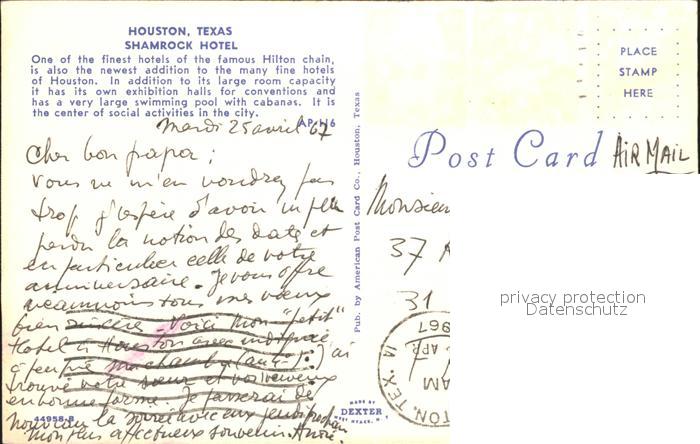 HOUSTON, TEXAS
SHAMROCK HOTEL
One of the finest hotels of the famous Hilton chain,
is also the newest addition to the many fine hotels
of Houston. In addition to its large room capacity
it has its own exhibition halls for conventions and
has a very large swimming pool with cabanas. It is
the center of social activities in the city.
AP-116
Mardi 25 avril 67
Cher bon papa ;
Vous ne m'en voudrez pas
trop j'espère d'avoir un peu
perdu la notion des dates et
en particulier celle de votre
anniversaire. Je vous offre
néanmoins tous mes vœux
bien sincères. Voici mon "petit"
Hotel à Houston avec indiqué
à peu près ma chambre J'ai
trouvé votre sœur et vos neveux
en bonne forme. Je passerai de
nouveau la soirée avec eux
Mon plus affectueux souvenir. André.
44958-B
Pub. by American Post Card Co., Houston, Texas
MADE BY
DEXTER
WEST NYACK, N.Y.
PLACE
STAMP
HERE
Post Card
AIR MAIL
Monsieur
37
31
1967
APR
AM
TON, TEX
privacy protection
Datenschutz